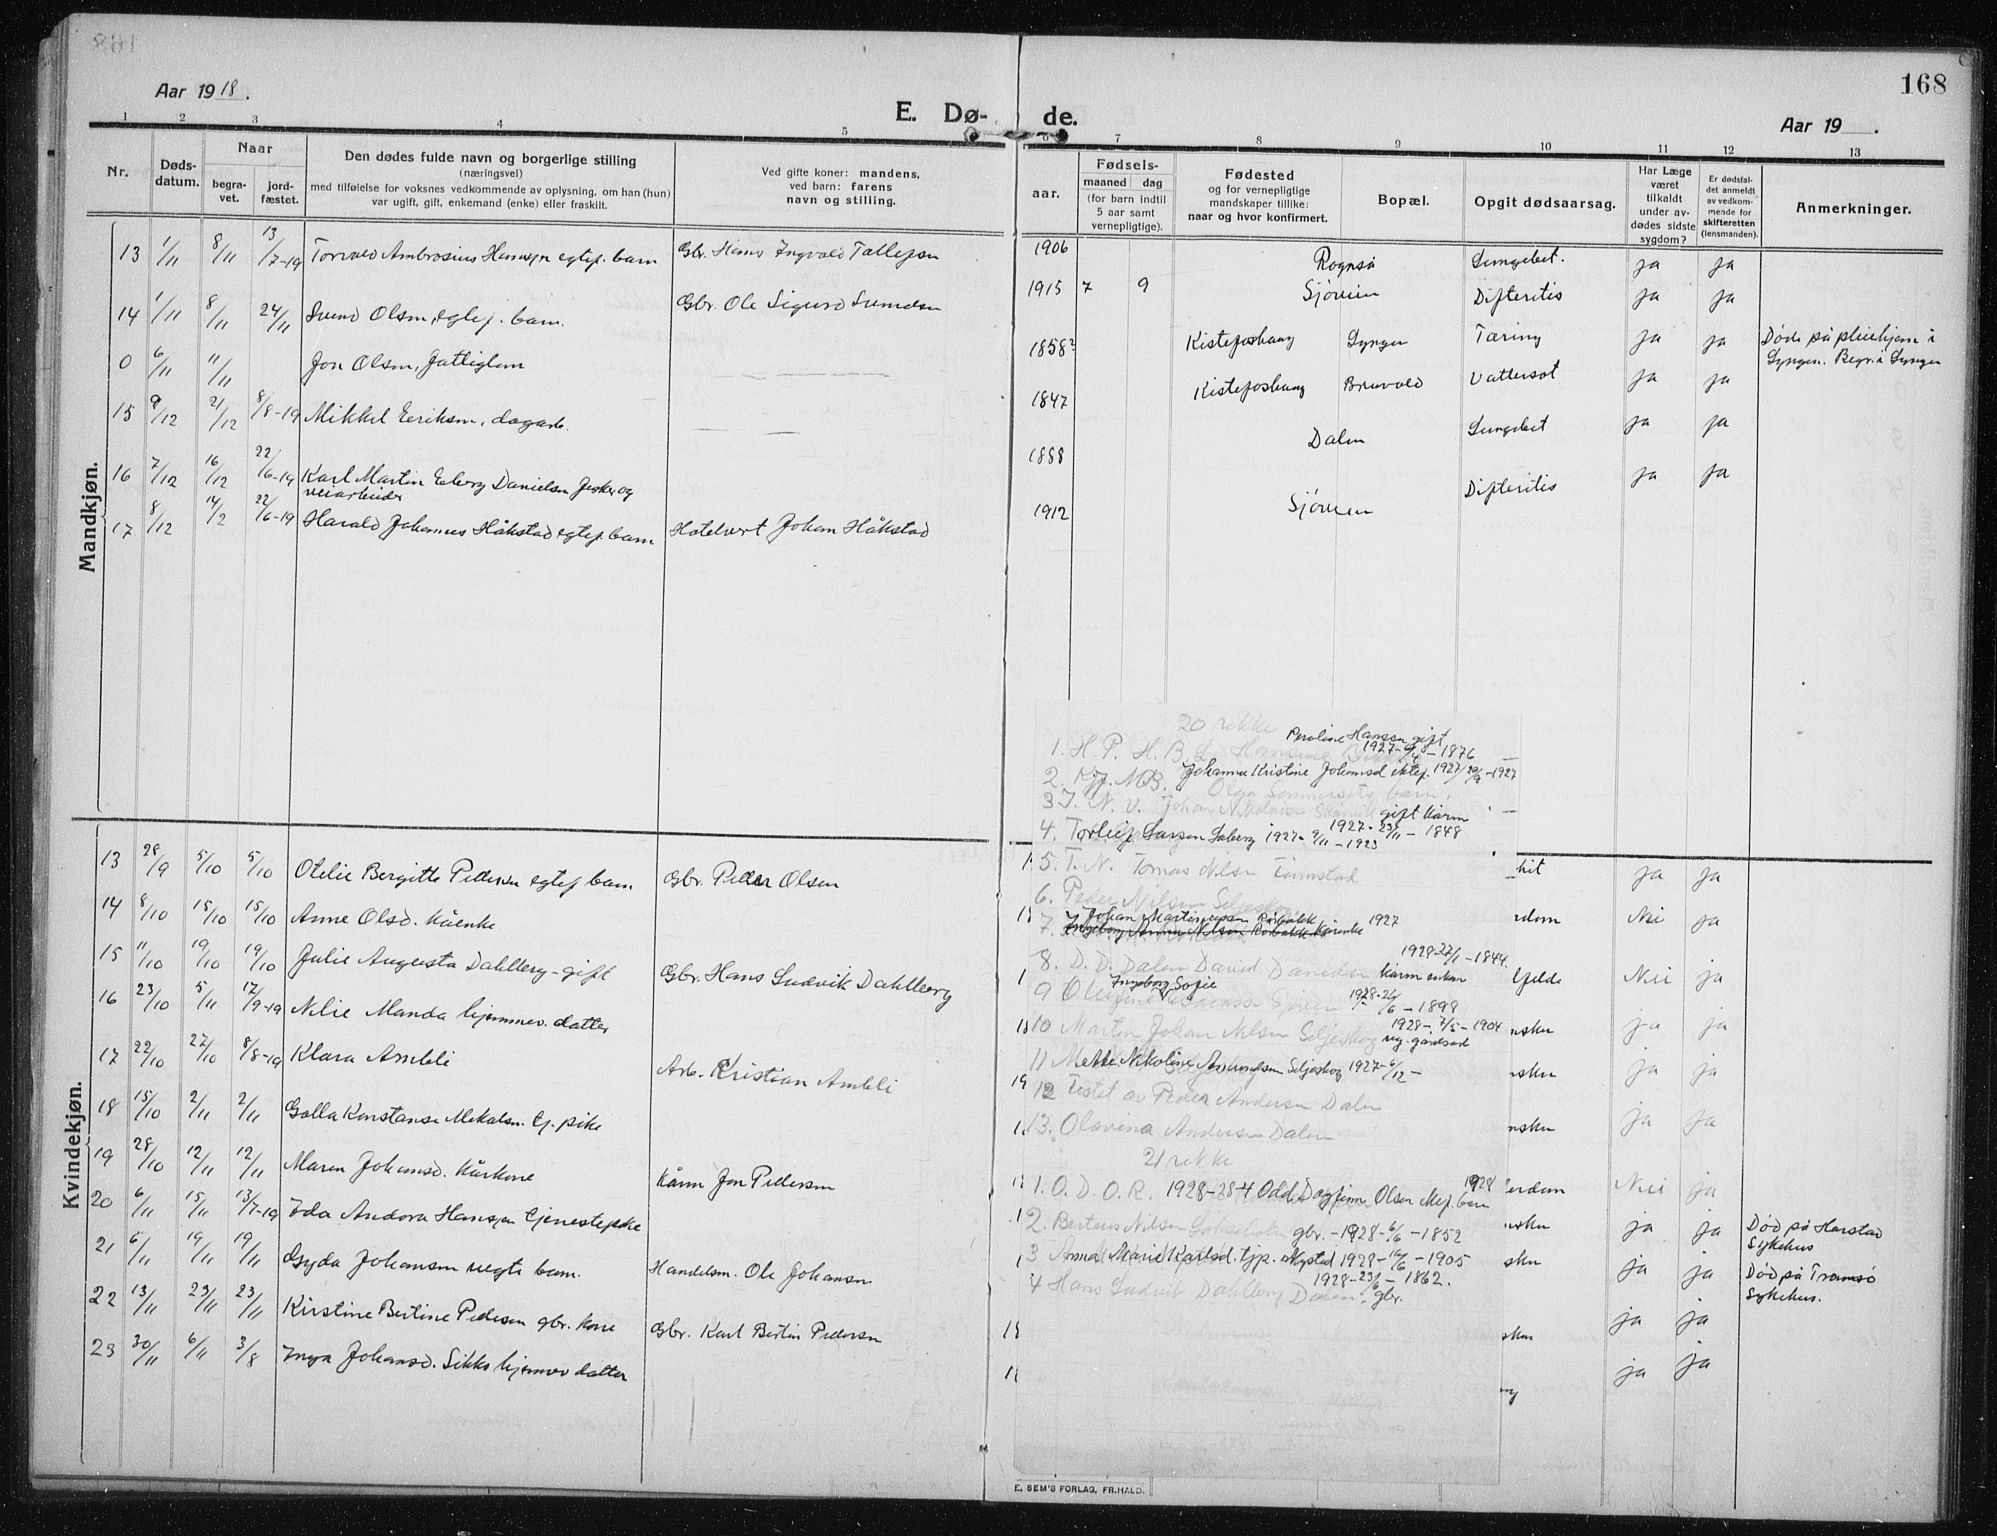 168
Aar 1918.
E. Dø-
de.
Aar 19 .
1 2 3 4 5 6 7 8 9 10 11 12 13
Nr.
Døds-
datum.
Naar
begra-
vet.
jord-
fæstet.
Den dødes fulde navn og borgerlige stilling
(næringsvei)
med tilføielse for voksnes vedkommende av oplysning, om han (hun)
var ugift, gift, enkemand (enke) eller fraskilt.
Ved gifte koner: mandens,
ved barn: farens
navn og stilling.
aar.
Fødsels-
maaned dag
(for barn indtil
5 aar samt
vernepligtige).
Fødested
og for vernepligtige
mandskaper tillike:
naar og hvor konfirmert.
Bopæl.
Opgit dødsaarsag.
Har Læge
været
tilkaldt
under av-
dødes sidste
sygdom?
Er dødsfal-
det anmeldt
av vedkom-
mende for
skifteretten
(lensmanden).
Anmerkninger.
Mandkjøn.
13 1/11 8/11 13/7-19 Torvald Ambrosius Hansen egtef. barn Gbr. Hans Ingvald Tollefsen 1906 Rognså Lungebet. ja ja
14 1/11 8/11 24/11 Svend Olsen, egtef. barn. Gbr. Ole Sigurd Svendsen 1915 7 9 Sjøveien Difteritis ja ja
0 6/11 11/11 Jon Olsen, Fattiglem 1858? Kistefoshaug Lyngen Tæring ja ja Døde på pleiehjem i
Lyngen. Begr. i Lyngen
15 9/12 21/12 8/8-19 Mikkel Eriksen, dagarb. 1847 Kistefoshaug Bruvold Vattersot ja ja
16 7/12 16/12 22/6-19 Karl Martin Edberg Danielsen fisker og
veiarbeider 1888 Dalen Lungebet ja ja
17 8/12 14/2 22/6-19 Harald Johannes Håkstad egtef. barn Hotelvert Johan Håkstad 1912 Sjøveien Difteritis ja ja
Kvindekjøn.
13 28/9 5/10 5/10 Otelie Bergitte Pedersen egtef barn Gbr. Peder Olsen hit ja ja
14 8/10 15/10 15/10 Anne Olsd. Kåenke rdom Nei ja
15 11/10 19/10 19/10 Julie Augusta Dahlberg - gift Gbr. Hans Ludvik Dahlberg lfelde Nei ja
16 23/10 5/11 17/9-19 Nelie Manda hjemmev. datter nsken ja ja
17 22/10 27/10 8/8-19 Klara Ambli Arb. Kristian Ambli nsken ja ja
18 15/10 2/11 2/11 Golla Konstanse Mikalsen tj. pike nsken ja ja
19 28/10 12/11 12/11 Maren Johansd. Kårkone Kårm Jon Pedersen erdom Nei ja
20 6/11 15/11 13/7-19 Ida Andora Hansen tjenestepike nsken ja ja Død på Harstad
Sykehus
21 5/11 19/11 19/11 Gyda Johansen uegte barn. Handelsm. Ole Johansen sken ja ja Død på Tromsø
Sykehus.
22 13/11 23/11 23/11 Kirstine Bertine Pedersen gbr. kone Gbr. Karl Bertin Pedersen sken ja ja
23 30/11 6/11 3/8 Inga Johansd. Sikko hjemmev datter ja ja
20 rekke
1. H. P. H. B. Peroline Hansen gift
1927-6/4-1876
2. M.B. Johanna Kristine Johansd 1927
3 J. N. V. Johan gift kårm
1927-23/11-1848
4. Torleif Larsen Løberg 1927-9/11-1923
5. T. N. Tomas Nilsen Tennstad
6. Peder Nilsen Seljeskog
7. Johan Martinussen Råbakk 1927
Ingeborg Anna Nilsen Råbakk Kårenke
8. D. D. Dalen David Danielsen Kårm 1928-27/1-1844.
9 Ingeborg Sofie 1928-26/6-1898
10 Martin Johan Nilsen Seljeskog 1928-7/5-1904
11 Mette Nikoline Andersen Seljeskog 1927-6/12-
12 Festet av Peder Andersen Dalen
13. Olavina Andersen Dalen
21 rekke
1. O. D. O. R. 1928-28-4 Odd Dagfinn Olsen 1928
2. Berteus Nilsen gbr. -1928-6/6-1852
3 Anna Marie Karlsd. tjp. Nysted 1928-16/6-1905
4 Hans Ludvik Dahlberg Dalen, gbr. 1928-23/6-1862.
E. SEM'S FORLAG, FR.HALD.